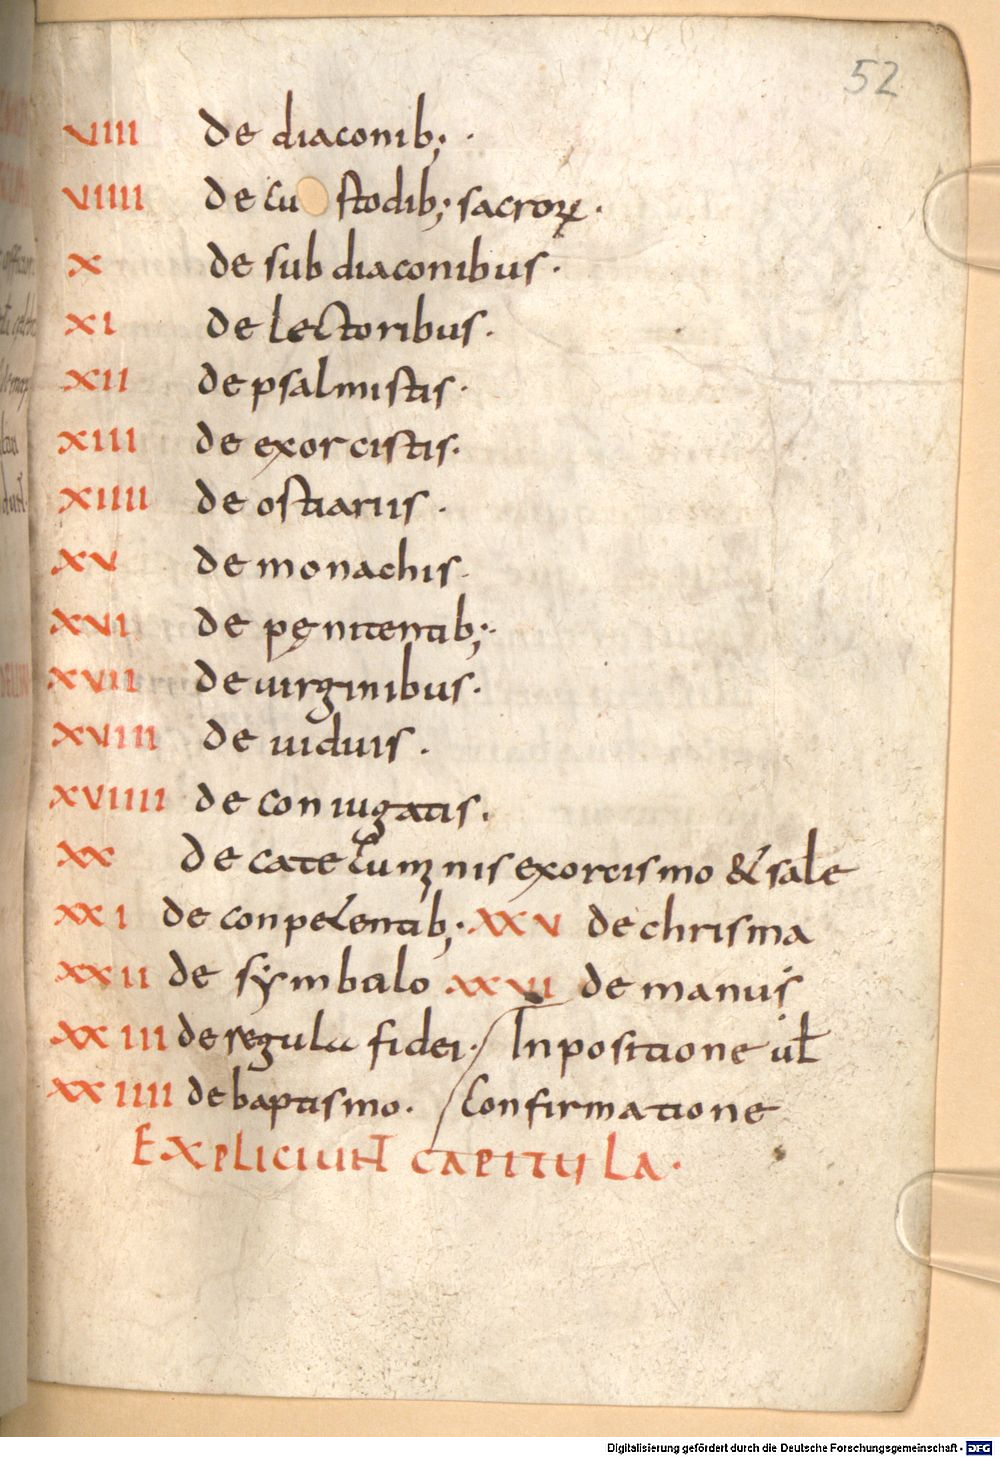 52
VIII de diaconib; ·
VIIII de custodib; sacroꝝ ·
X de sub diaconibus ·
XI de lectoribus ·
XII de psalmistis ·
XIII de exorcistis ·
XIIII de ostiariis ·
XV de monachis ·
XVI de pęnitentib; ·
XVII de uirginibus ·
XVIII de uiduis ·
XVIIII de coniugatis ·
XX de catecuminis exorcismo & sale
XXI de conpetentib; · XXV de chrisma
XXII de symbolo XXVI de manus
XXIII de regula fidei · / Inpositione ul̄
XXIIII de baptismo · / Confirmatione
EXPLICIUNT CAPITULA ·
Digitalisierung gefördert durch die Deutsche Forschungsgemeinschaft - DFG